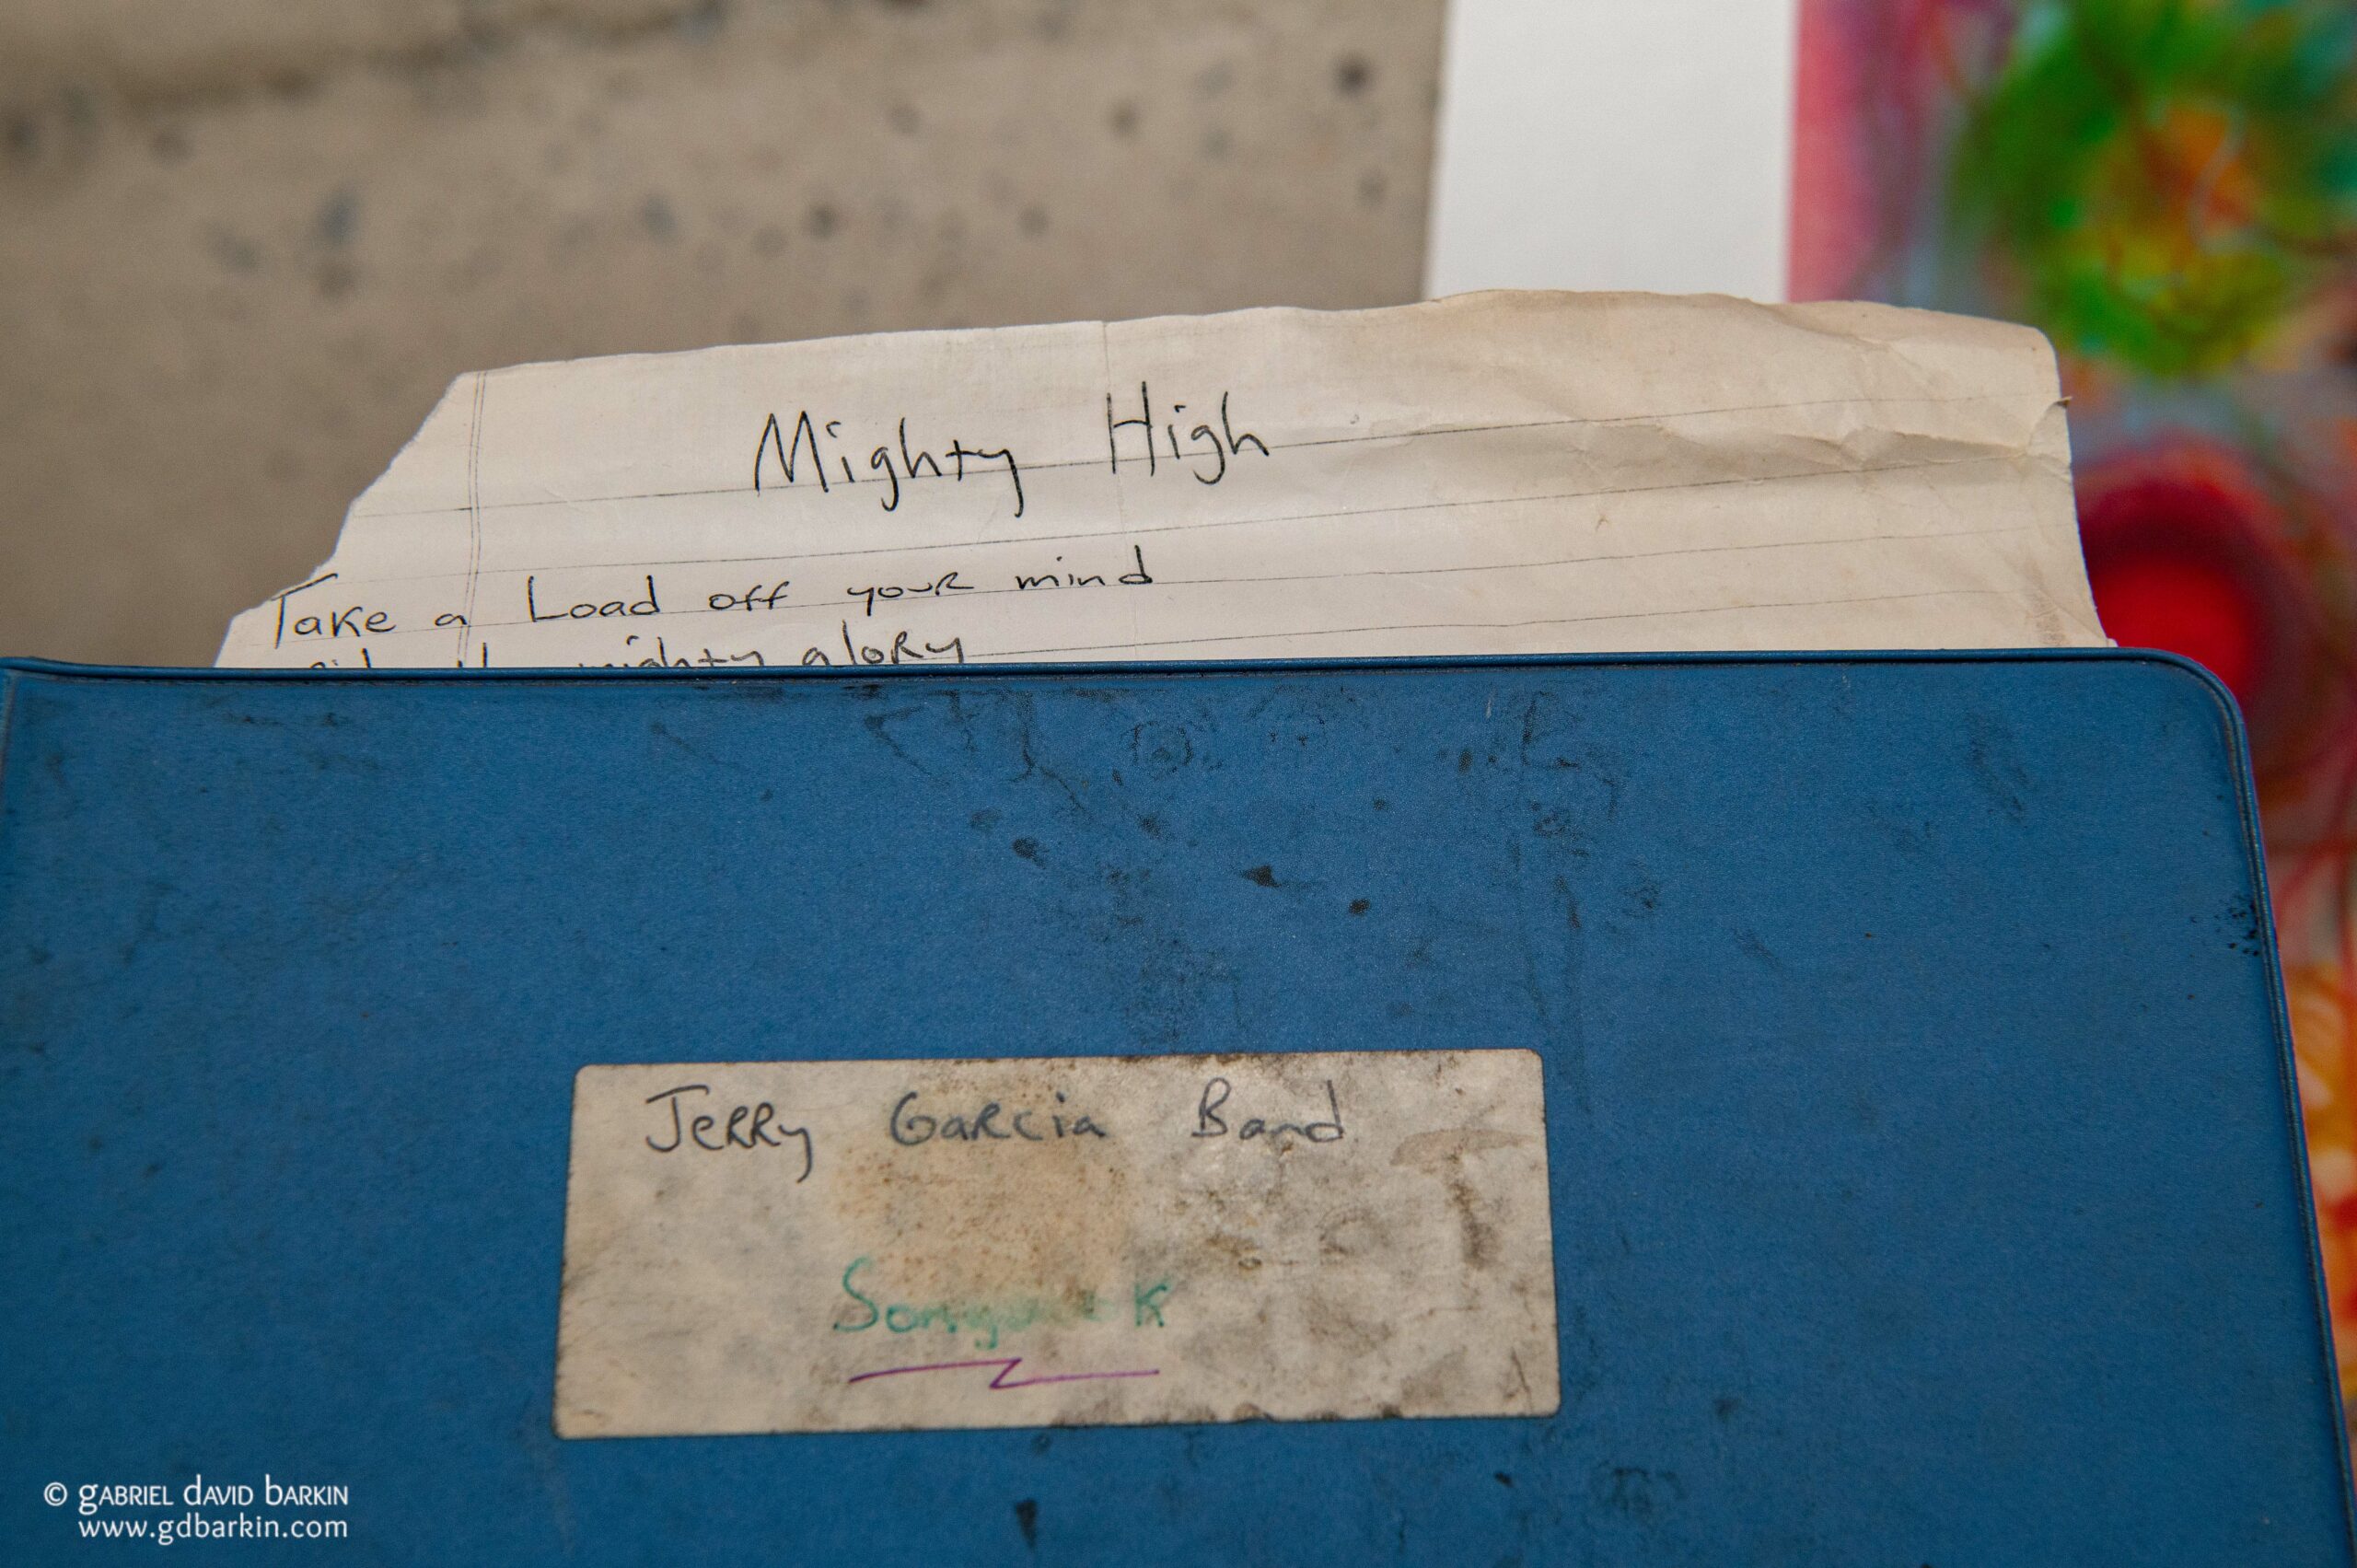 Mighty High
Take a Load off your mind
mighty glory
Jerry Garcia Band
Songbook
© GABRIEL DAVID BARKIN
www.gdbarkin.com